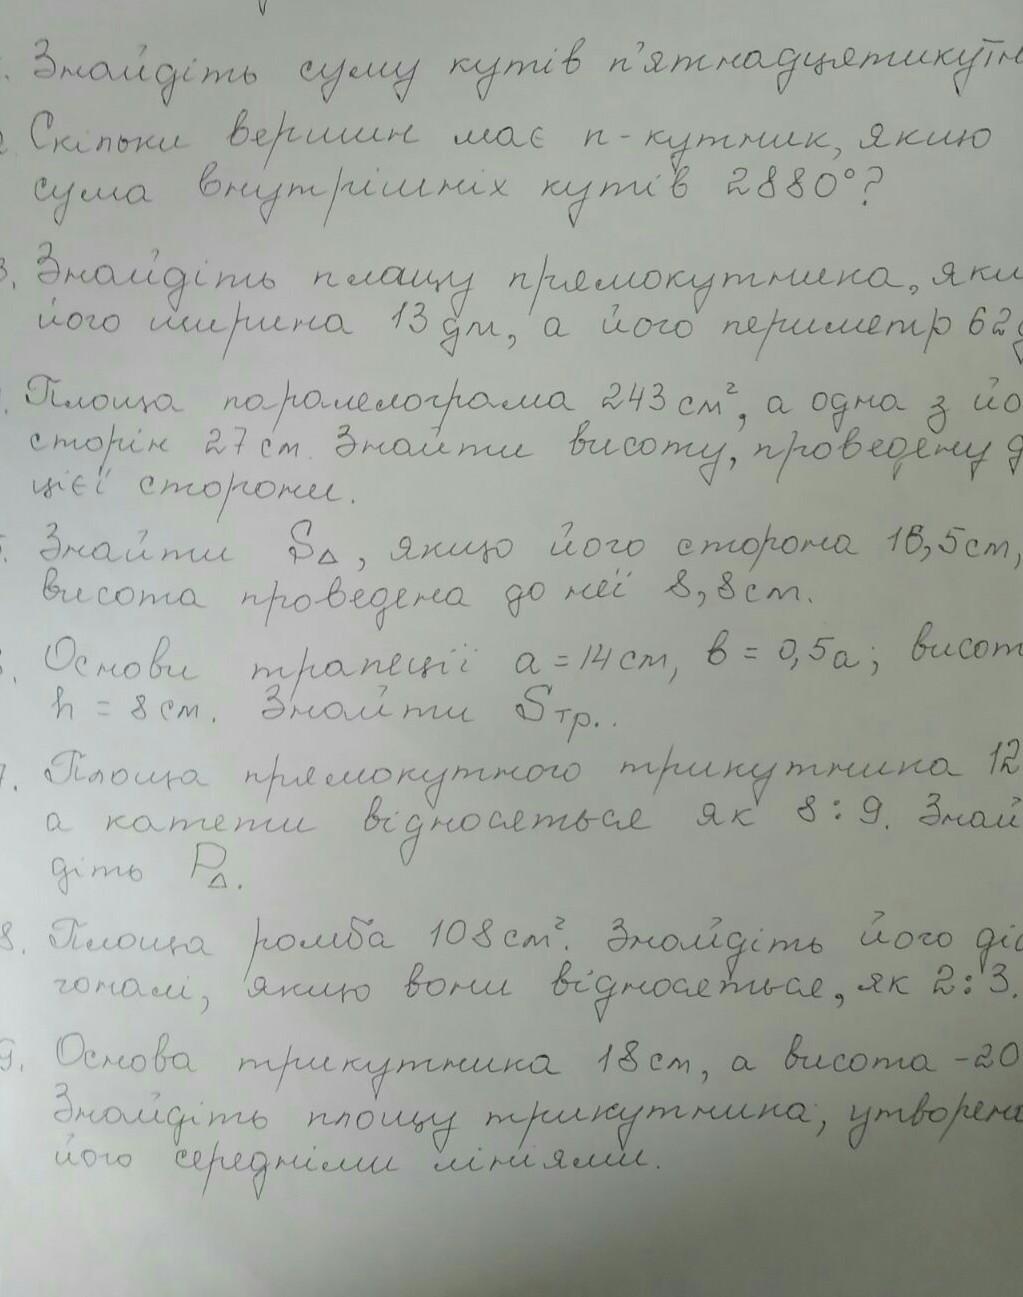 Знайдіть суму кутів п'ятнадцятикутн
Скільки вершин має n-кутник, якщо
сума внутрішніх кутів 2880°?
3. Знайдіть площу прямокутника, якщ
його ширина 13 дм, а його периметр 62 д
Площа паралелограма 243 см², а одна з йо
сторін 27 см. Знайти висоту, проведену д
цієї сторони.
Знайти S△, якщо його сторона 16,5см,
висота проведена до неї 8,8см.
Основи трапеції a = 14 см, в = 0,5a; висот
h = 8 см. Знайти Sтр..
7. Площа прямокутного трикутника 12
а катети відносяться як 8 : 9. Знай
діть P△.
8. Площа ромба 108 см². Знайдіть його діа
гоналі, якщо вони відносяться, як 2:3.
9. Основа трикутника 18 см, а висота - 20
Знайдіть площу трикутника, утворен
його середніми лініями.